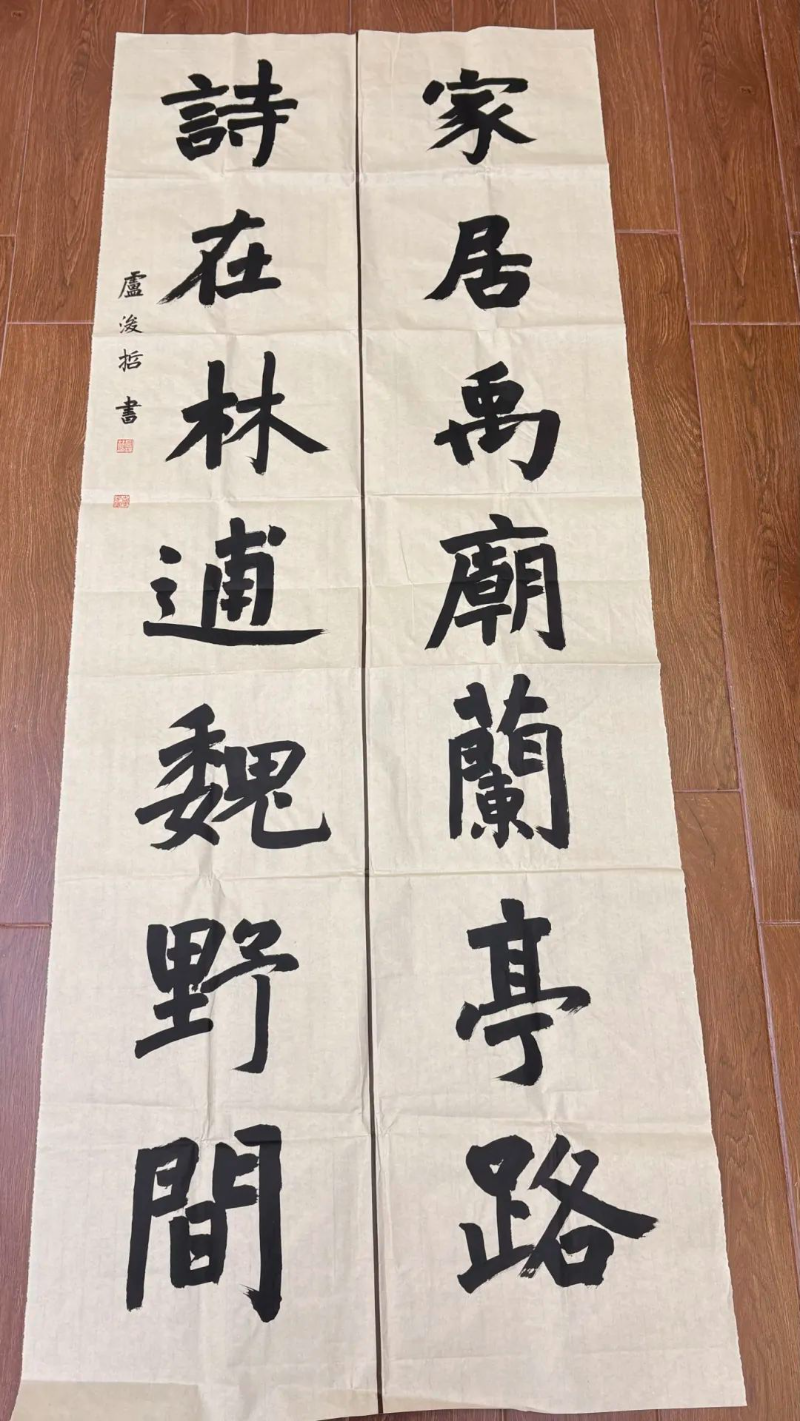 家居禹廟蘭亭路
詩在林逋魏野間
盧浚哲書